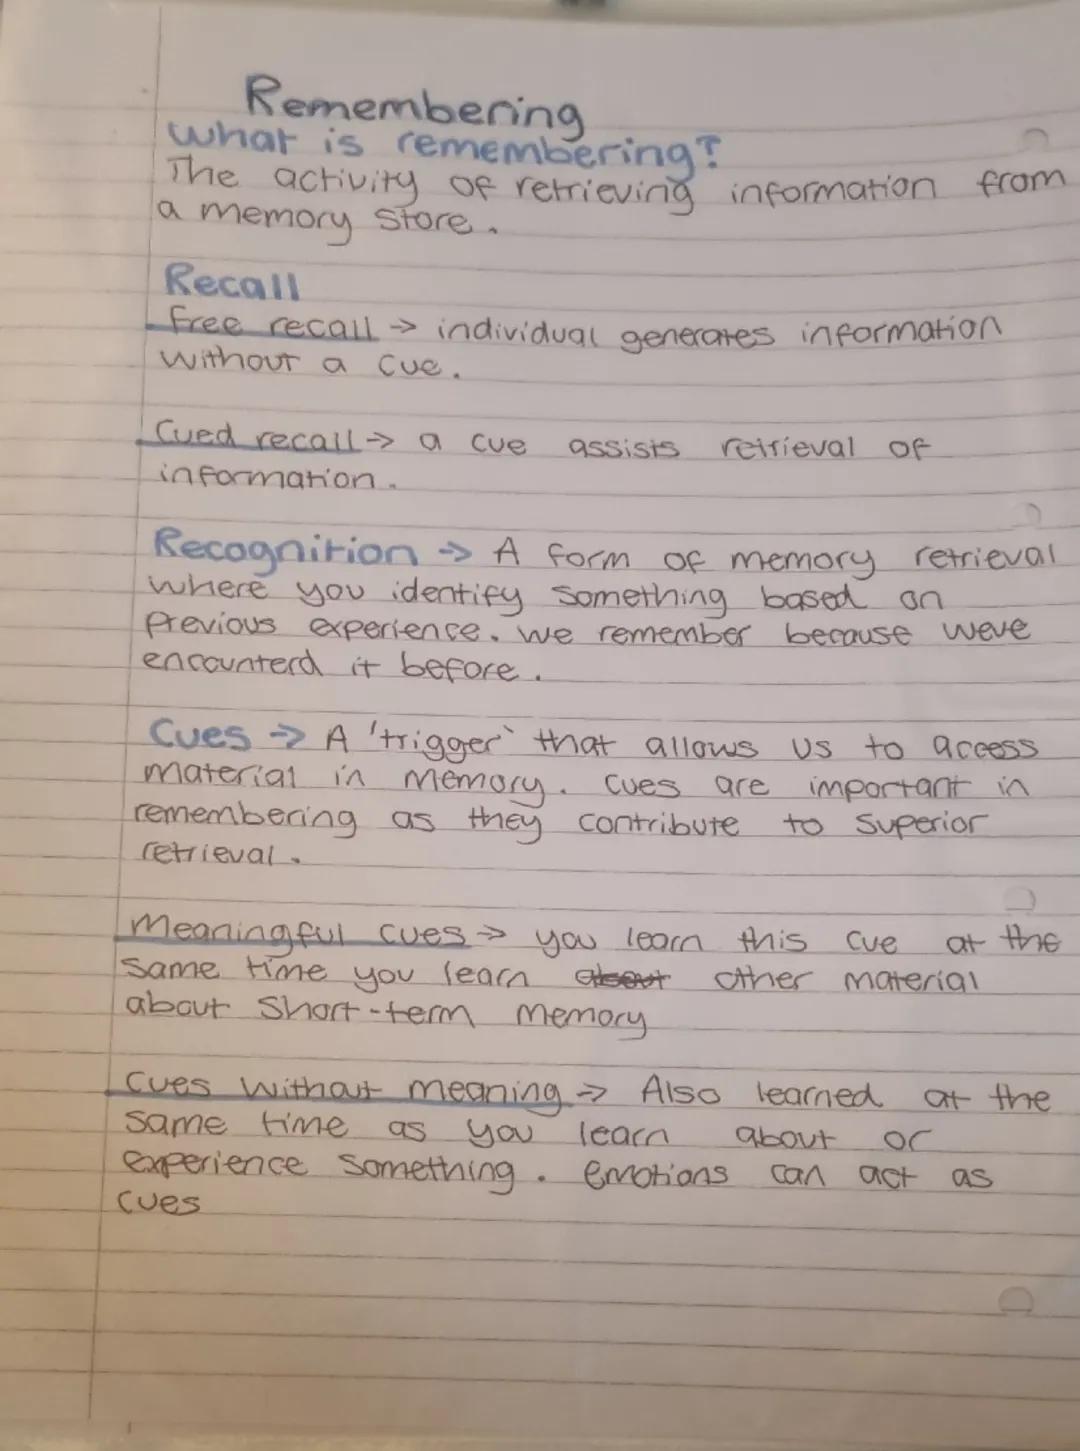 Remembering
What is remembering?
The activity of retrieving information from
a memory store.
Recall
Free recall → individual generates information
without a cue.
Cued recall → a cue assists retrieval of
information.
Recognition → A form of memory retrieval
where you identify something based on
previous experience. We remember because weve
encounterd it before.
Cues → A 'trigger' that allows us to access
material in memory. Cues are important in
remembering as they contribute to superior
retrieval.
Meaningful cues → you learn this cue at the
same time you learn other material
about short-term memory
Cues without meaning → Also learned at the
same time as you learn about or
experience something. emotions can act as
cues